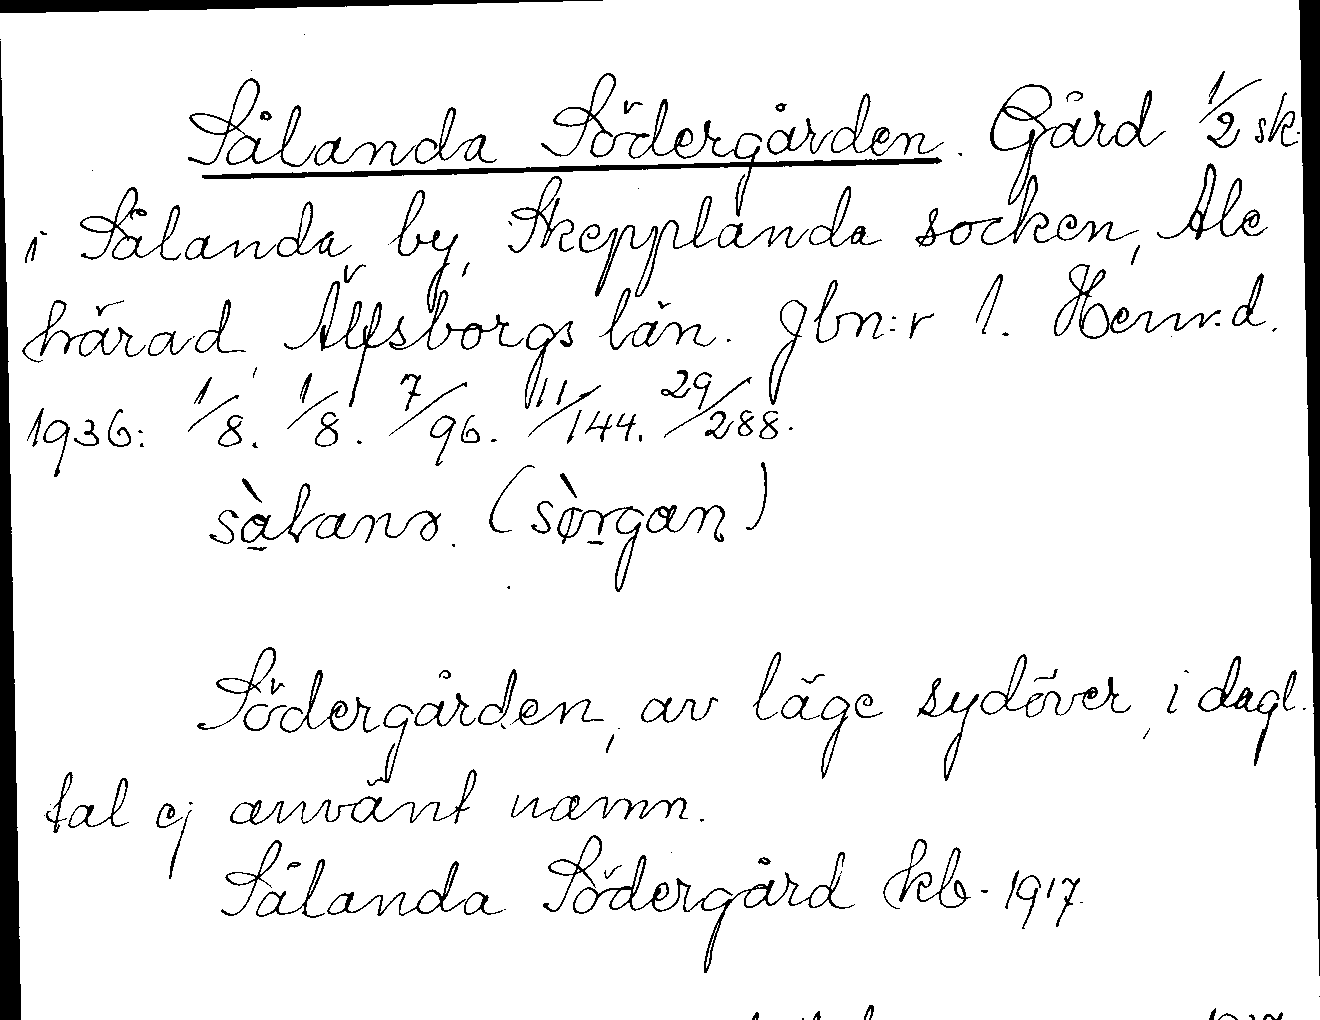 Sålanda Södergården. Gård 1/2 sk.
i Sålanda by, Skepplanda socken, Ale
härad, Älfsborgs län. Jbn:r 1. Hemv.d.
1936: 1/8. 1/8. 7/96. 11/144. 29/288.
Södergården, av läge sydöver, i dagl.
tal ej använt namn.
Sålanda Södergård kb. 1917.